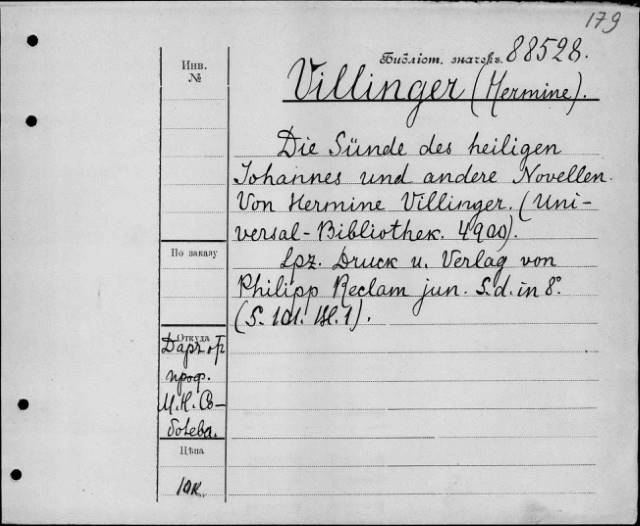 179
Инв.
№
Библіот. значекъ. 88528.
Villinger (Hermine).
Die Sünde des heiligen
Johannes und andere Novellen.
Von Hermine Villinger. (Uni-
versal-Bibliothek. 4900).
По заказу
Lpz. Druck u. Verlag von
Philipp Reclam jun. S.d. in 8°.
(S. 101.
Откуда
Даръ
проф.
Цѣна
10к.